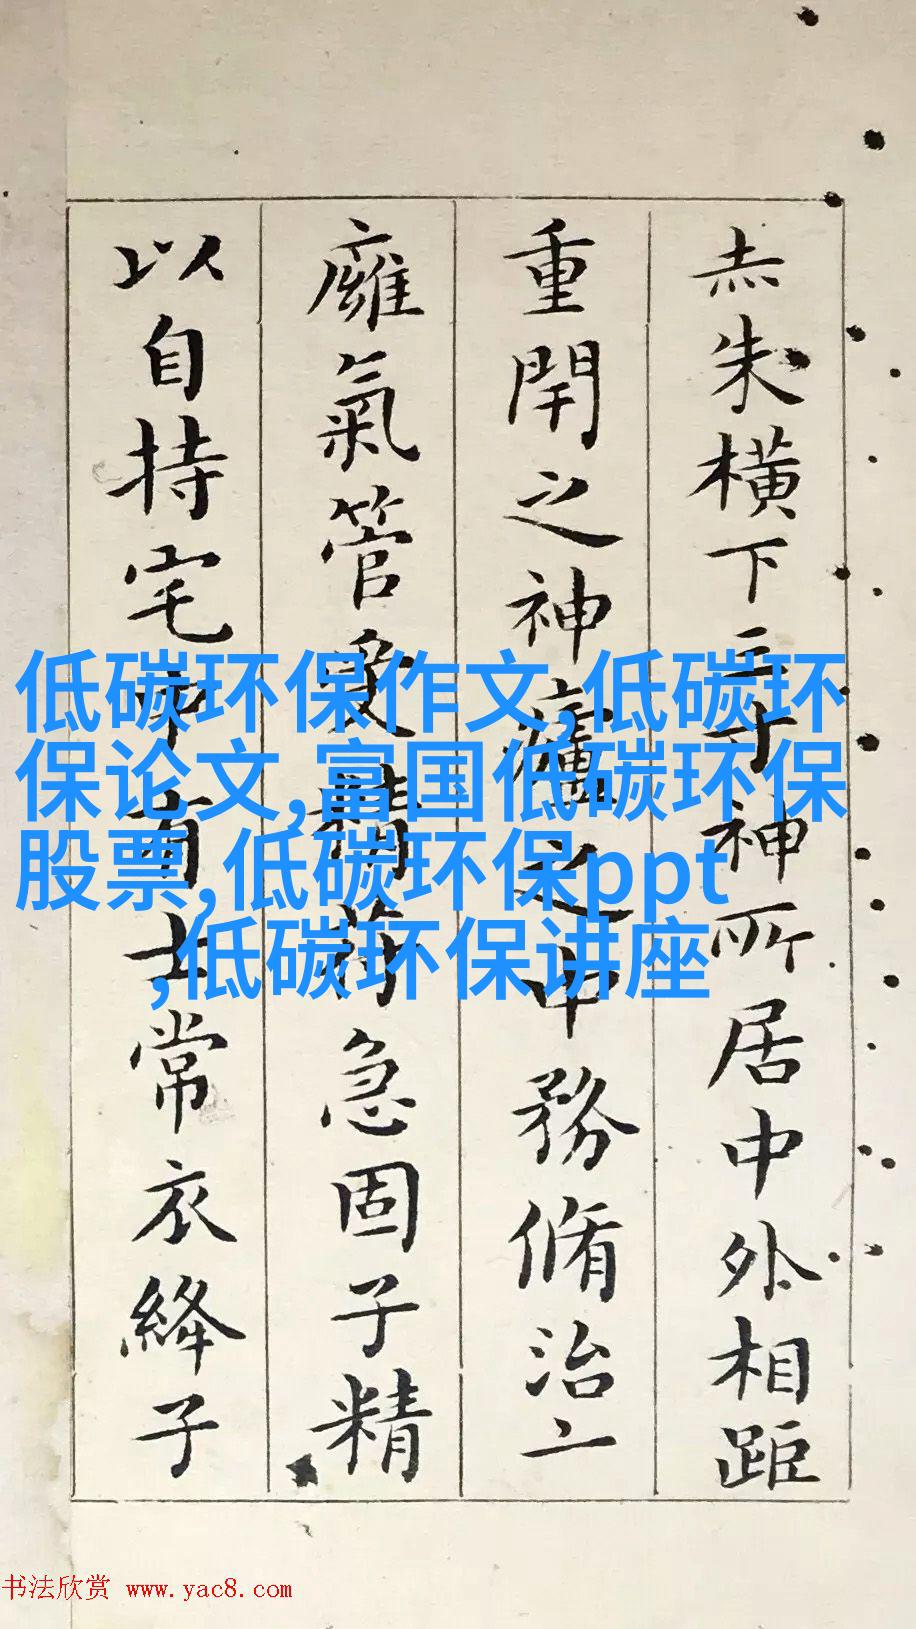 赤朱橫下三寸神所居中外相距
重閇之神廬之中務脩治
廱氣管受精符急固子精
以自持宅中有士常衣絳子
低碳环保作文,低碳环
保论文,富国低碳环保
股票,低碳环保ppt
,低碳环保讲座
书法欣赏 www.yac8.com